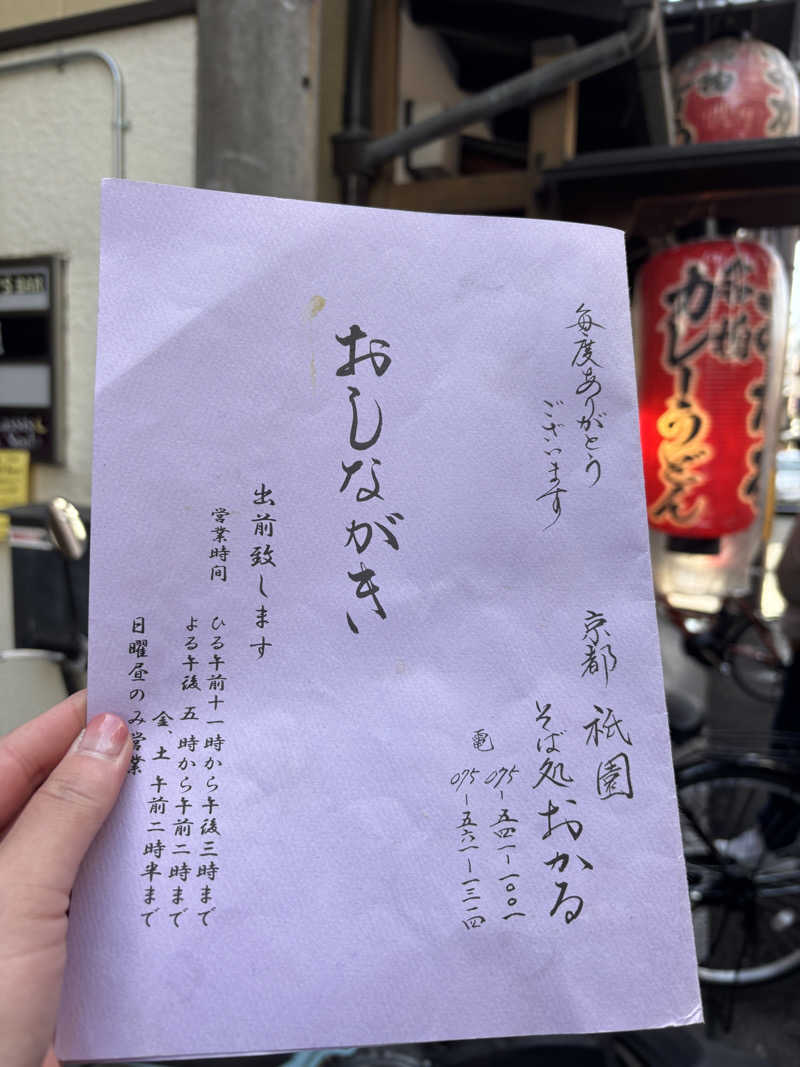 毎度ありがとう
ございます
京都 祇園
そば処 おかる
電 075-五四一-一〇〇一
075-五六一-一三一四
おしながき
出前致します
営業時間
ひる午前十一時から午後三時まで
よる午後 五 時から午前二時まで
金、土 午前二時半まで
日曜昼のみ営業
カレーうどん
S BAR